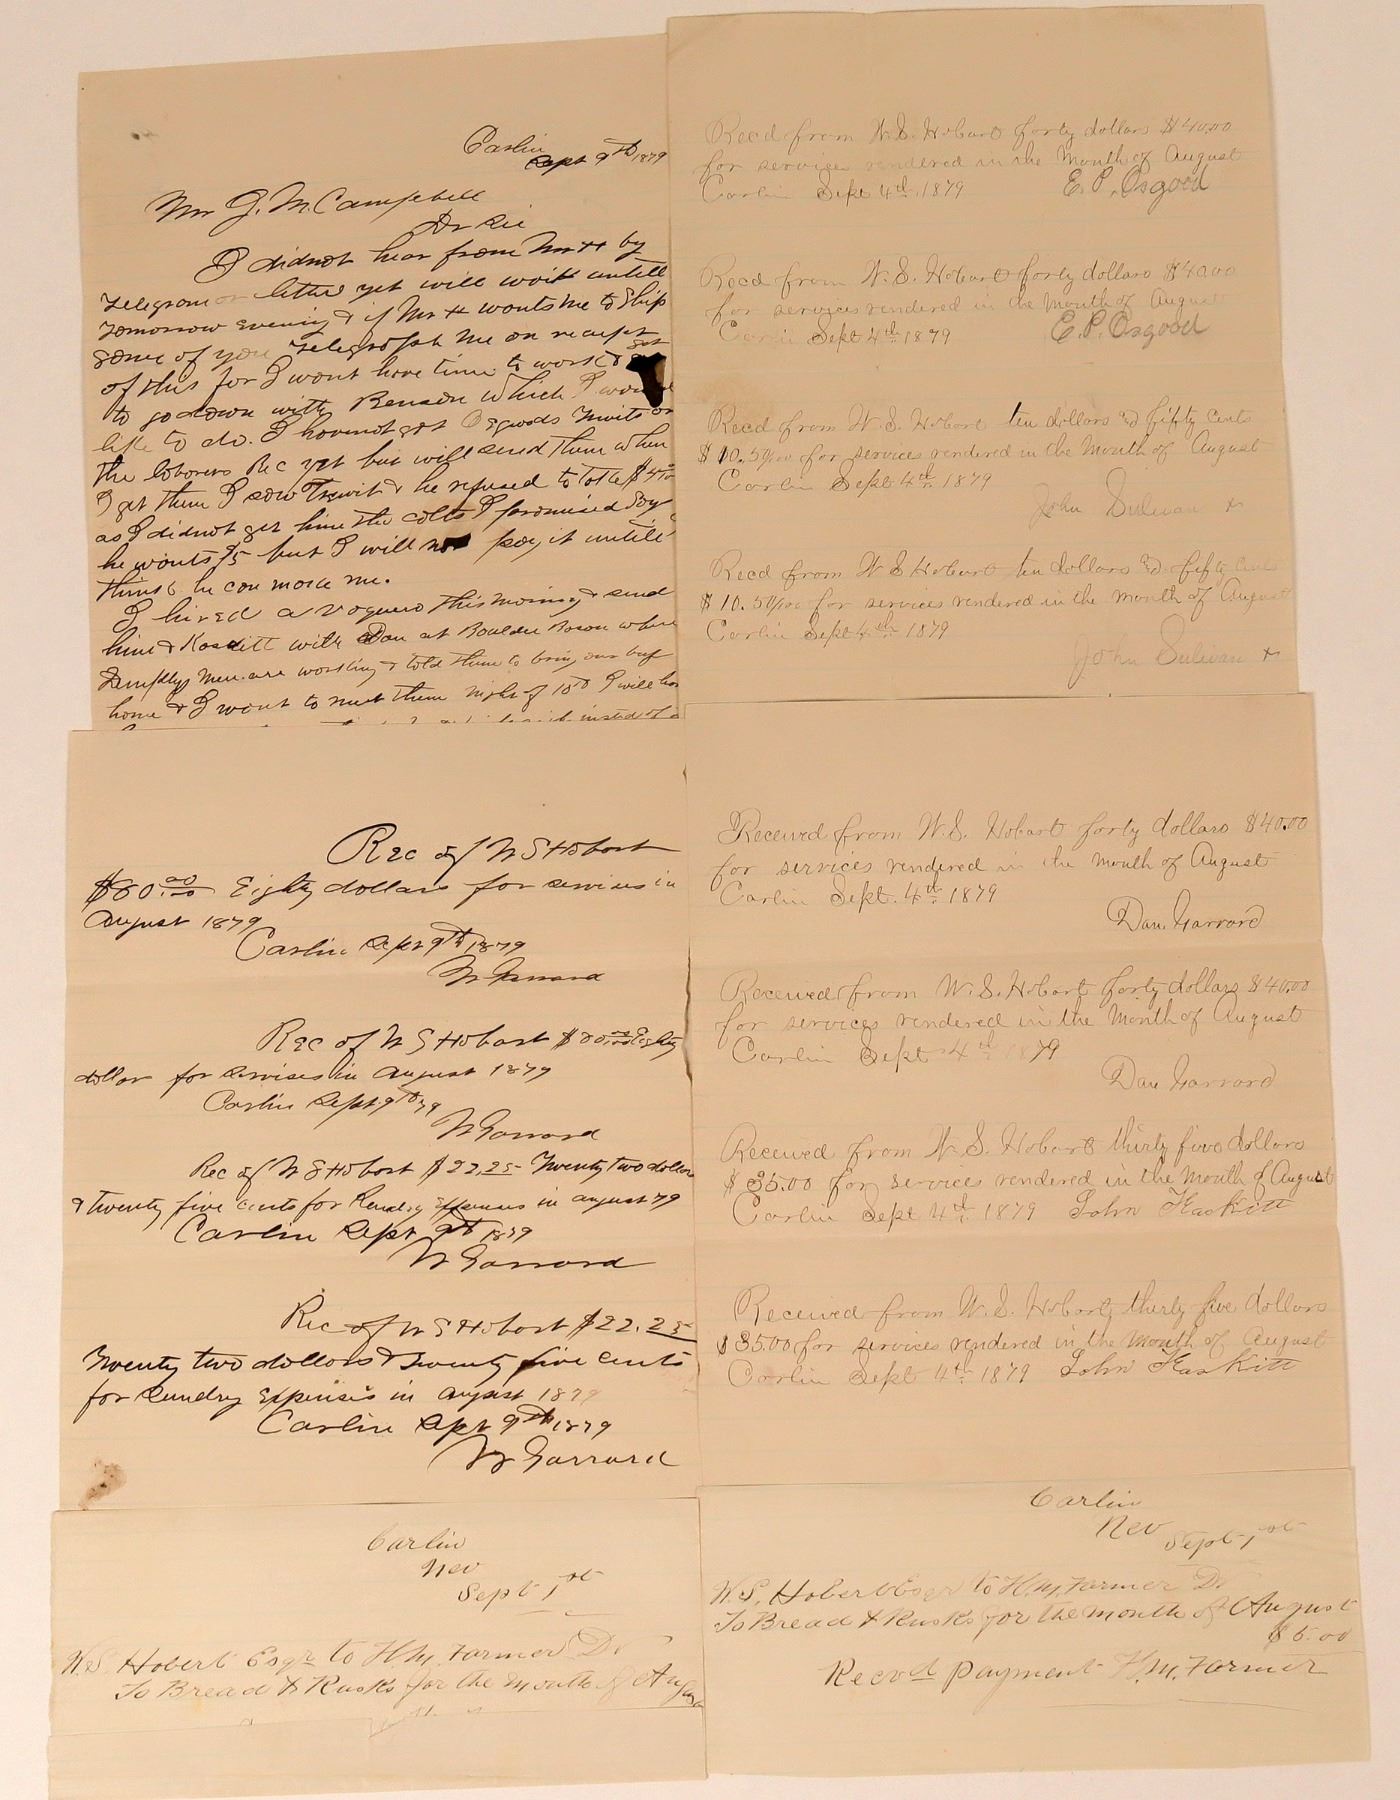 Carlin
Sept 9th 1879
Mr J. M. Campbell
Dr Sir
I didnot hear from Mr H by
Telegram or letter yet will wait untill
tomorrow evening & if Mr H wants me to ship
some of you Telegraph me on receipt
of this for I wont have time to work &
to go down with Benson which I would
like to do. I havenot got Osgoods
the laborers Rec yet but will send them when
I get them I saw Trewit & he refused to take $4
as I didnot get him the colts I promised
he wants 75 but I will not pay it untill
thinks he can make me.
I hired a Vaquero this morning & send
him & Kaskitt with Dan at Boulder Bason where
Dunphys Men are working & told them to bring our beef
home & I want to meet them night of 10th I will
instead of a
Recd from W. S. Hobart forty dollars $40.00
for services rendered in the Month of August
Carlin Sept 4th. 1879 E. P. Osgood
Recd from W. S. Hobart forty dollars $40.00
for services rendered in the Month of August
Carlin Sept 4th. 1879 E. P. Osgood
Recd from W. S. Hobart ten dollars & fifty cents
$10.50/100 for services rendered in the Month of August
Carlin Sept 4th. 1879
John Sulivan x
Recd from W S Hobart ten dollars & fifty cents
$10.50/100 for services rendered in the Month of August
Carlin Sept 4th 1879
John Sulivan x
Rec of W S Hobart
$80.00 Eighty dollars for services in
August 1879
Carlin Sept 9th 1879
W Garrard
Rec of W S Hobart $80.00 Eighty
dollars for services in August 1879
Carlin Sept 9th 79
W Garrard
Rec of W S Hobart $22.25 Twenty two dollars
& twenty five cents for Sundry Expenses in august 79
Carlin Sept 9th 1879
W Garrard
Rec of W S Hobart $22.25
Twenty two dollars & Twenty five cents
for Sundry Expenses in august 1879
Carlin Sept 9th 1879
W Garrard
Received from W. S. Hobart forty dollars $40.00
for services rendered in the Month of August
Carlin Sept. 4th. 1879
Dan. Garrard
Received from W. S. Hobart forty dollars $40.00
for services rendered in the Month of August
Carlin Sept 4th. 1879
Dan Garrard
Received from W. S. Hobart thirty five dollars
$35.00 for services rendered in the Month of August
Carlin Sept 4th. 1879 John Kaskitt
Received from W. S. Hobart thirty five dollars
$35.00 for services rendered in the Month of August
Carlin Sept 4th. 1879 John Kaskitt
Carlin
Nev
Sept 1st
W. S. Hobert Esqr to H. M. Farmer Dr
To Bread & Rusks for the month of August
Carlin
Nev
Sept 1st
W. S. Hobert Esqr to H. M. Farmer Dr
To Bread & Rusks for the month of August
$5.00
Recvd payment H. M. Farmer